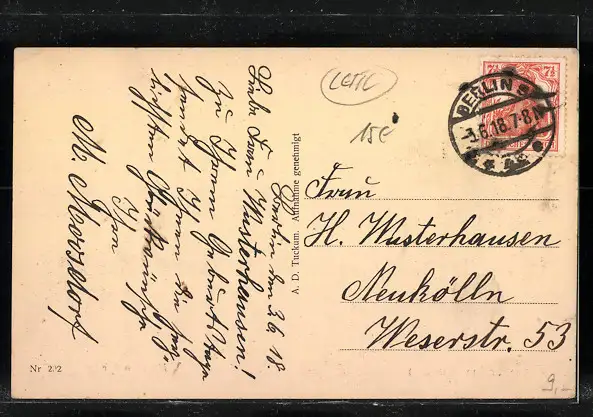 Berlin den 3.6.18
Liebe Frau Wusterhausen!
Zu Ihrem Geburtstage
sendet Ihnen die herz-
lichsten Glückwünsche
Ihre
M. Morzdorf
Nr 2
A. D. Tuckum. Aufnahme genehmigt
LETTL
15€
7½
BERLIN S
3.6.18.7-8
Frau
H. Wusterhausen
Neukölln
Weserstr. 53
9,-